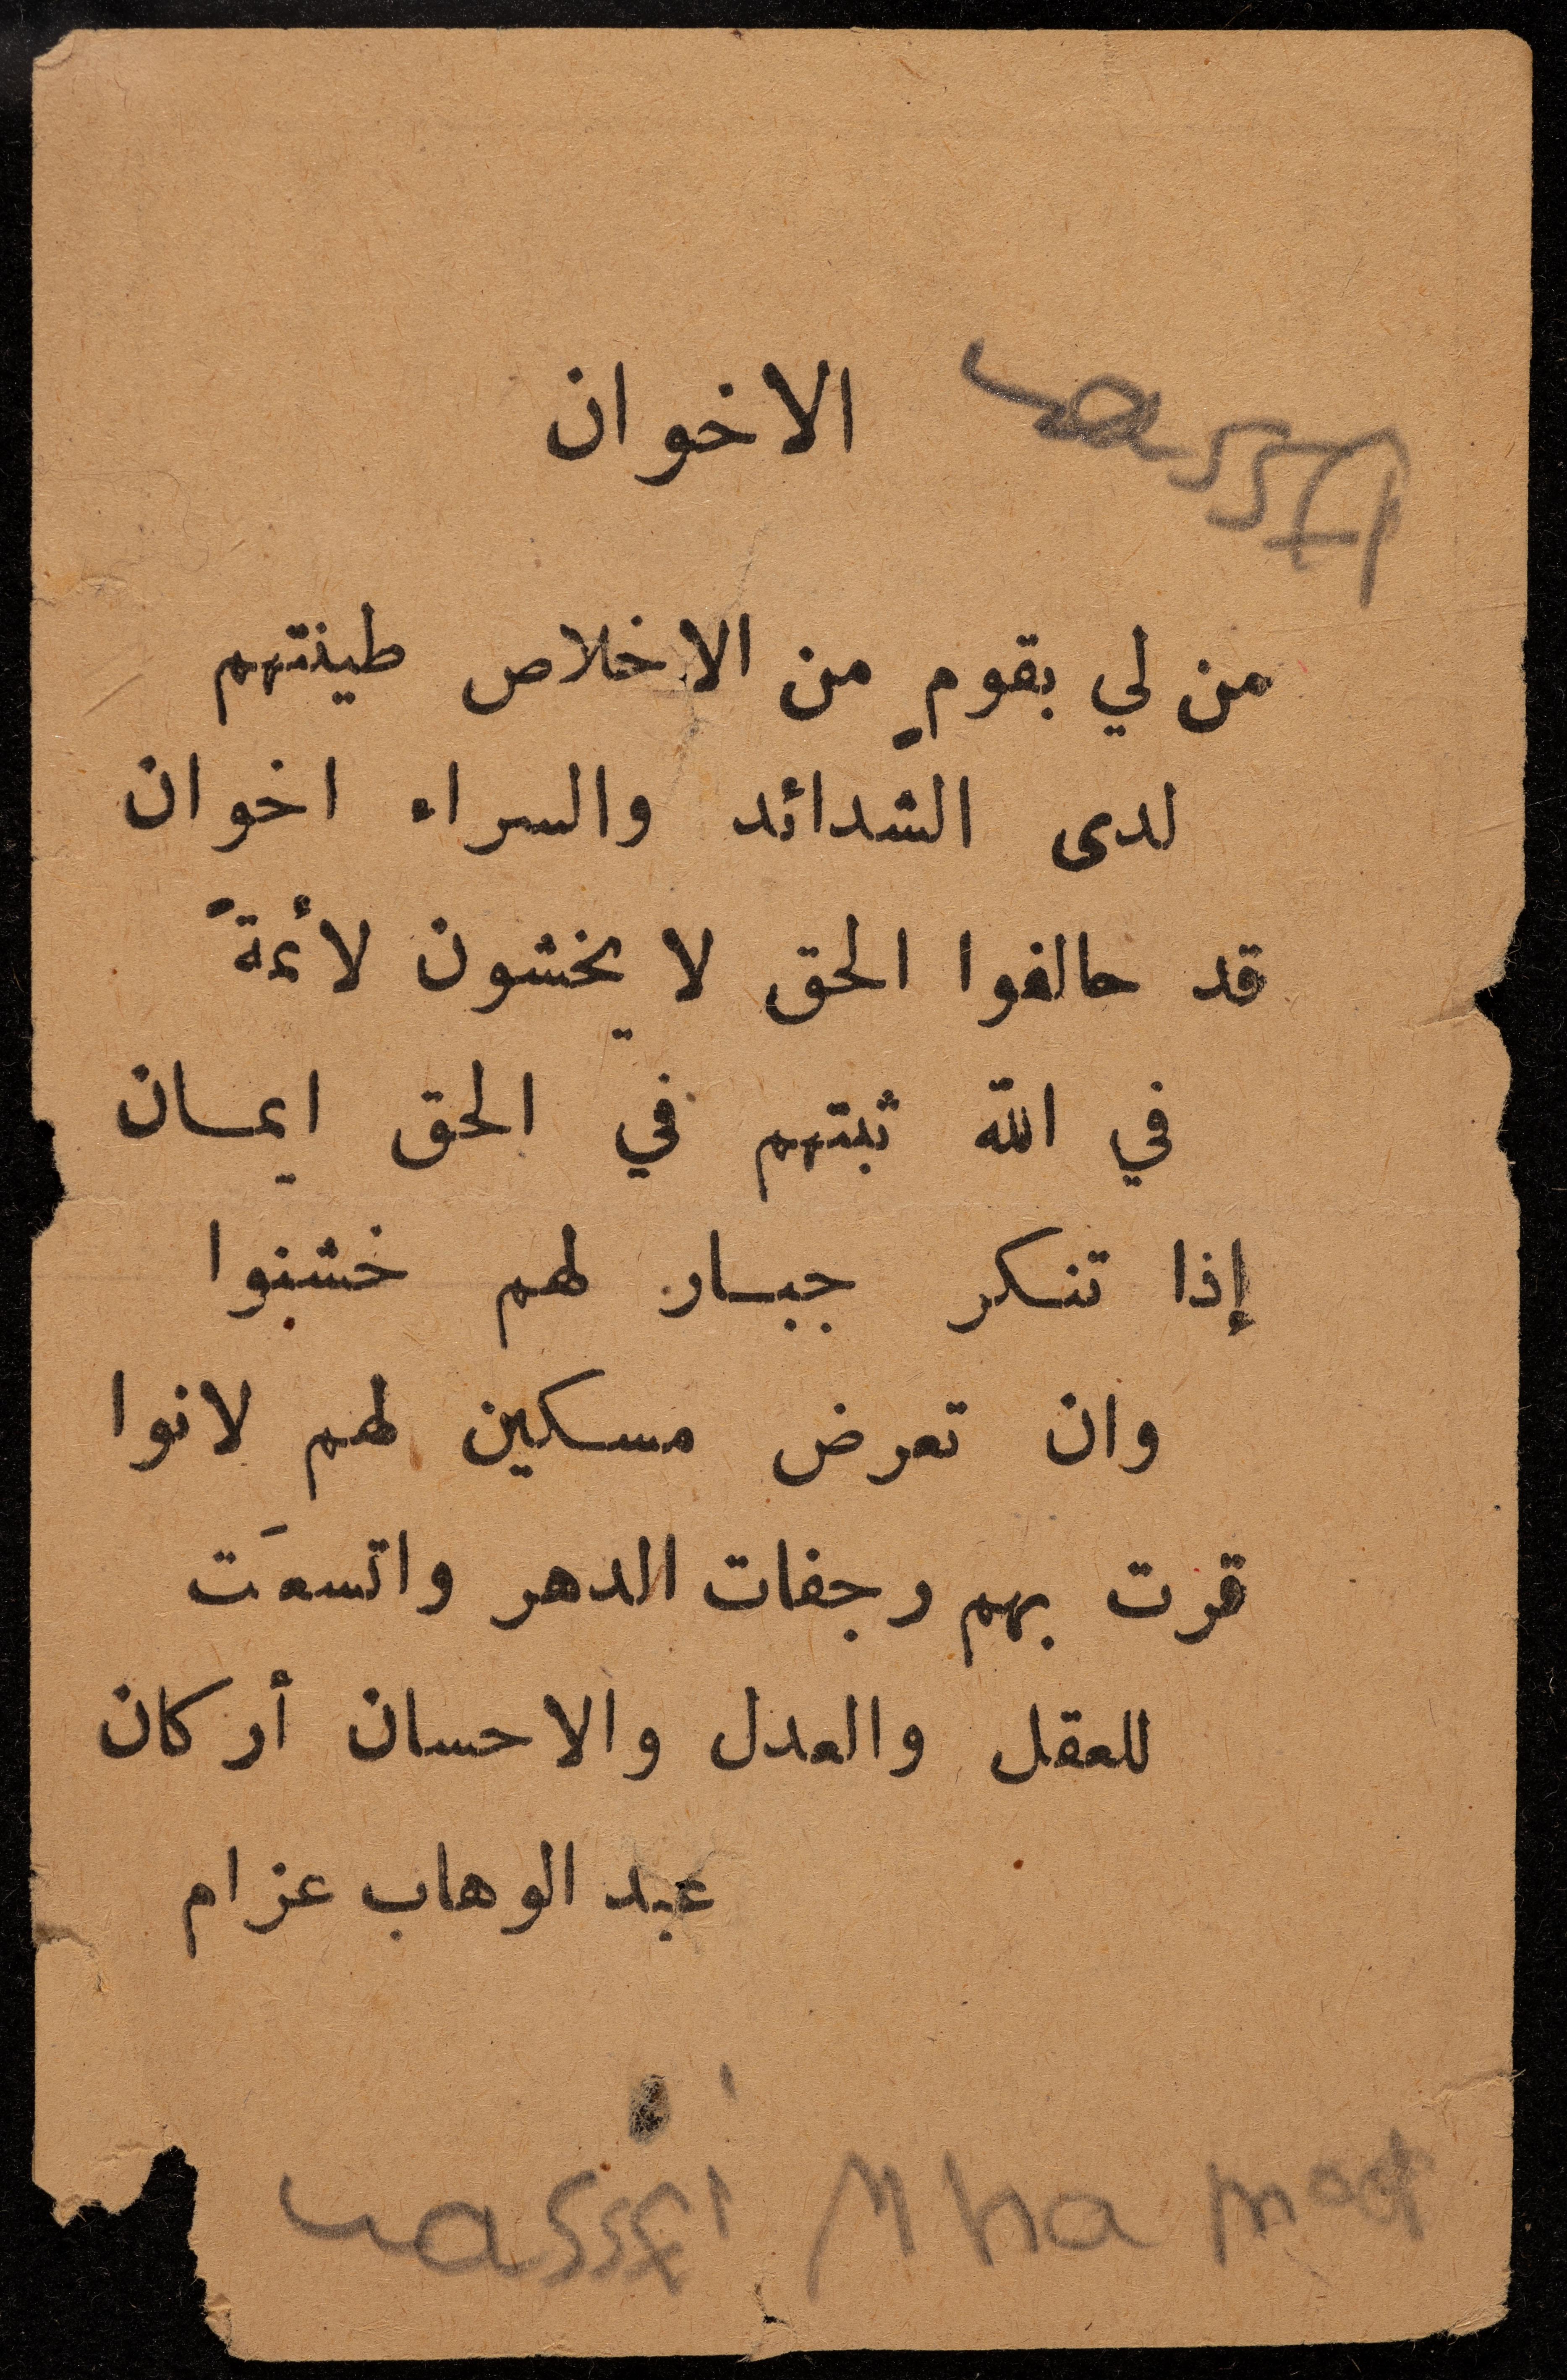 الاخوان
من لي بقومٍ من الاخلاص طينتهم
لدى الشدائد والسراء اخوان
قد حالفوا الحق لا يخشون لائمةً
في الله ثبتهم في الحق ايمان
إذا تنكر جبار لهم خشنوا
وان تعرض مسكين لهم لانوا
قرت بهم رجفات الدهر واتسعَت
للعقل والعدل والاحسان أركان
عبد الوهاب عزام